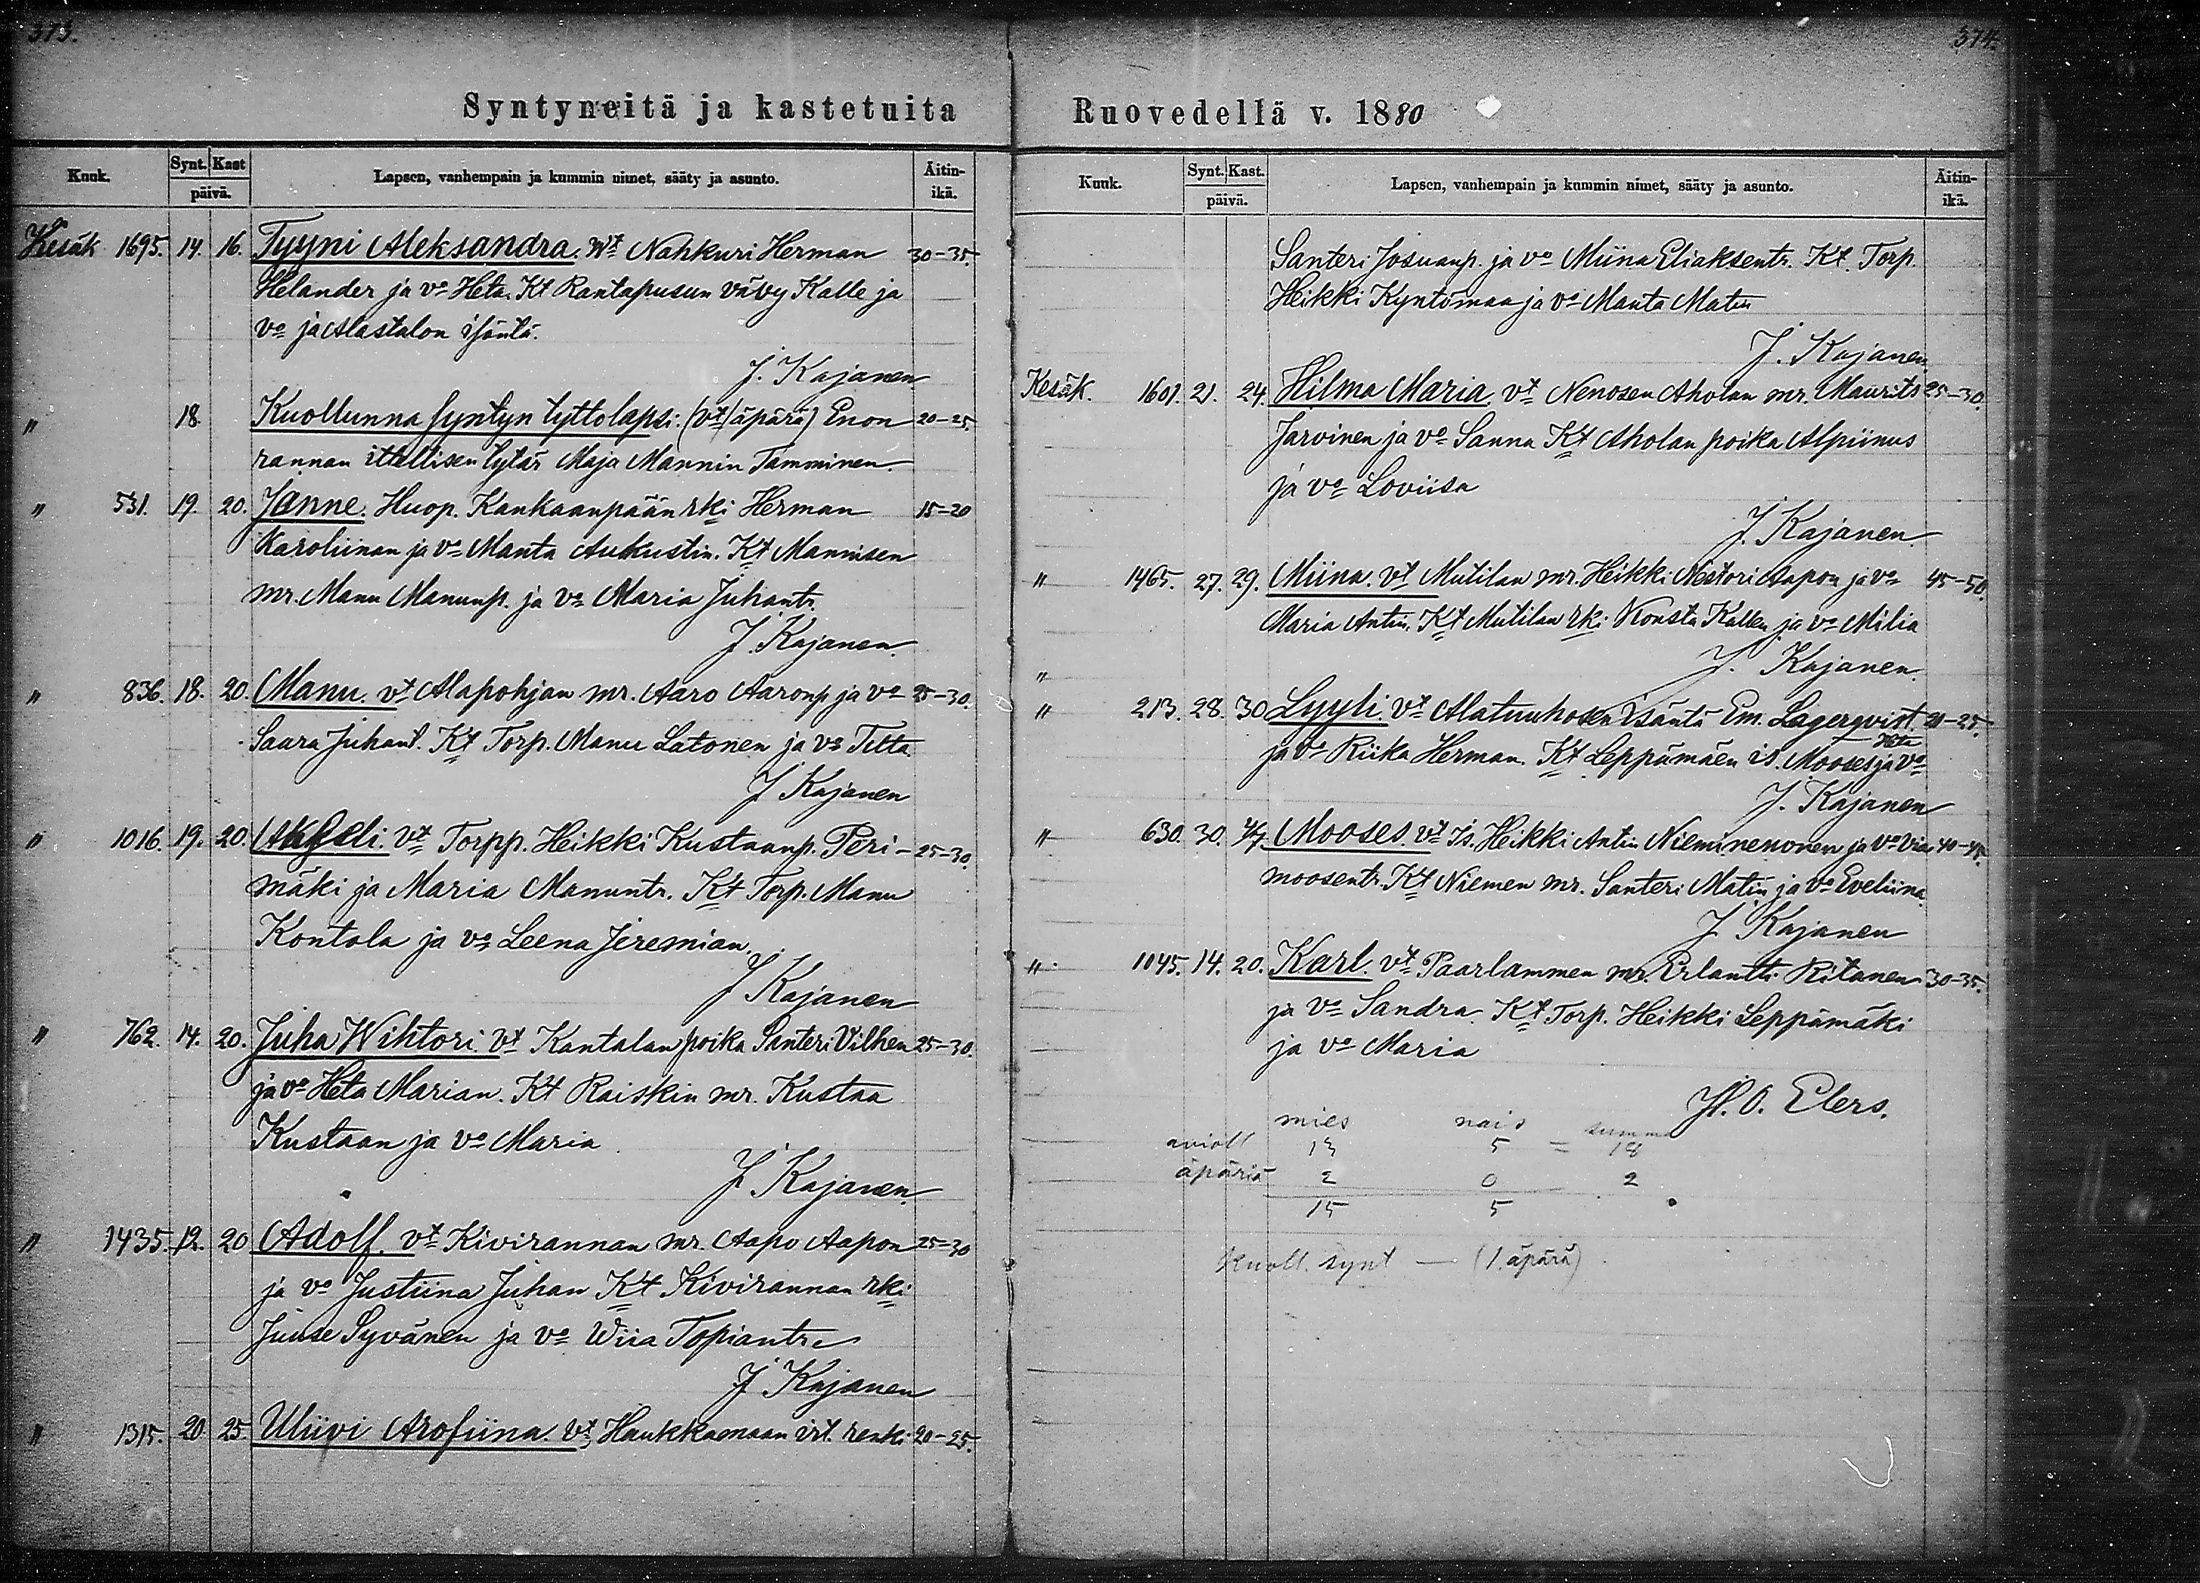 373.
Syntyneitä ja kastetuita
Kuuk.
Synt. Kast
päivä.
Lapsen, vanhempain ja kummin nimet, sääty ja asunto.
Äitin-
ikä.
Kesäk 1695. 14. 16. Tyyni Aleksandra. vt Nahkuri Herman 30-35.
Helander ja vo Heta. Kt Rantapusun vävy Kalle ja
vo ja Alastalon isäntä.
J. Kajanen
" 18. Kuollunna syntyn tyttolapsi: (vt äpärä) Enon 20-25.
rannan ittellisen tytär Maja Mannin Tamminen.
" 531. 19. 20. Janne. Huop. Kankaanpään rki Herman 15-20
Karoliinan ja vo Manta Aukustin. Kt Mannisen
mr. Manu Manunp. ja vo Maria Juhantr.
J. Kajanen.
" 836. 18. 20. Manu. vt Alapohjan mr. Aaro Aaronp ja vo 25-30.
Saara Juhant. Kt Torp. Manu Latonen ja vo Tilta.
J Kajanen
" 1016. 19. 20. Akseli. vt Torpp. Heikki Kustaanp. Peri- 25-30.
mäki ja Maria Manuntr. Kt Torp. Manu
Kontola ja vo Leena Jeremian.
J Kajanen
" 762. 14. 20. Juha Wihtori. vt Kantalan poika Santeri Vilhen 25-30.
ja vo Heta Marian. Kt Raiskin mr. Kustaa
Kustaan ja vo Maria
J Kajanen.
" 1435. 12. 20 Adolf. vt Kivirannan mr. Aapo Aapon 25-30
ja vo Justiina Juhan Kt Kivirannan rki
Juuse Syvänen ja vo Wiia Topiantr.
J Kajanen
" 1315. 20. 25. Uliivi Arofiina. vt Haukkamaan irt. renki 20-25.
374.
Ruovedellä v. 1880
Kuuk.
Synt. Kast.
päivä.
Lapsen, vanhempain ja kummin nimet, sääty ja asunto.
Äitin-
ikä.
Santeri Josuanp. ja vo Miina Eliaksentr. Kt. Torp.
Heikki Kyntömaa ja vo Manta Matin
J. Kajanen
Kesäk. 1601. 21. 24. Hilma Maria. vt Nenosen Aholan mr. Maurits 25-30.
Jarvinen ja vo Sanna Kt Aholan poika Alpiinus
ja vo Loviisa
J. Kajanen.
" 1465. 27. 29. Miina. vt Mutilan mr. Heikki Nestori Aapon ja vo 45-50.
Maria Antin. Kt Mutilan rki Konsta Kallen ja vo Milia
" J. Kajanen.
" 213. 28. 30 Lyyli. vt Alatuuhosen isäntä Em. Lagerqvist. 20-25.
ja vo Riika Herman. Kt Leppämäen is. Mooses ja vo Heta
J. Kajanen
" 630. 30. 4/7. Mooses. vt Is. Heikki Antin Nieminenonen ja vo Viia 40-45.
moosentr. Kt Niemen mr. Santeri Matin ja vo Eveliina.
J Kajanen
" 1045. 14. 20. Karl. vt Paarlammen mr. Erlantti Ritanen 30-35.
ja vo Sandra. Kt Torp. Heikki Leppämäki
ja vo Maria
H. O. Elers.
mies nais summa
avioll 13 5 = 18
äpäriä 2 0 2
15 5
Kuoll. synt — (1. äpärä)